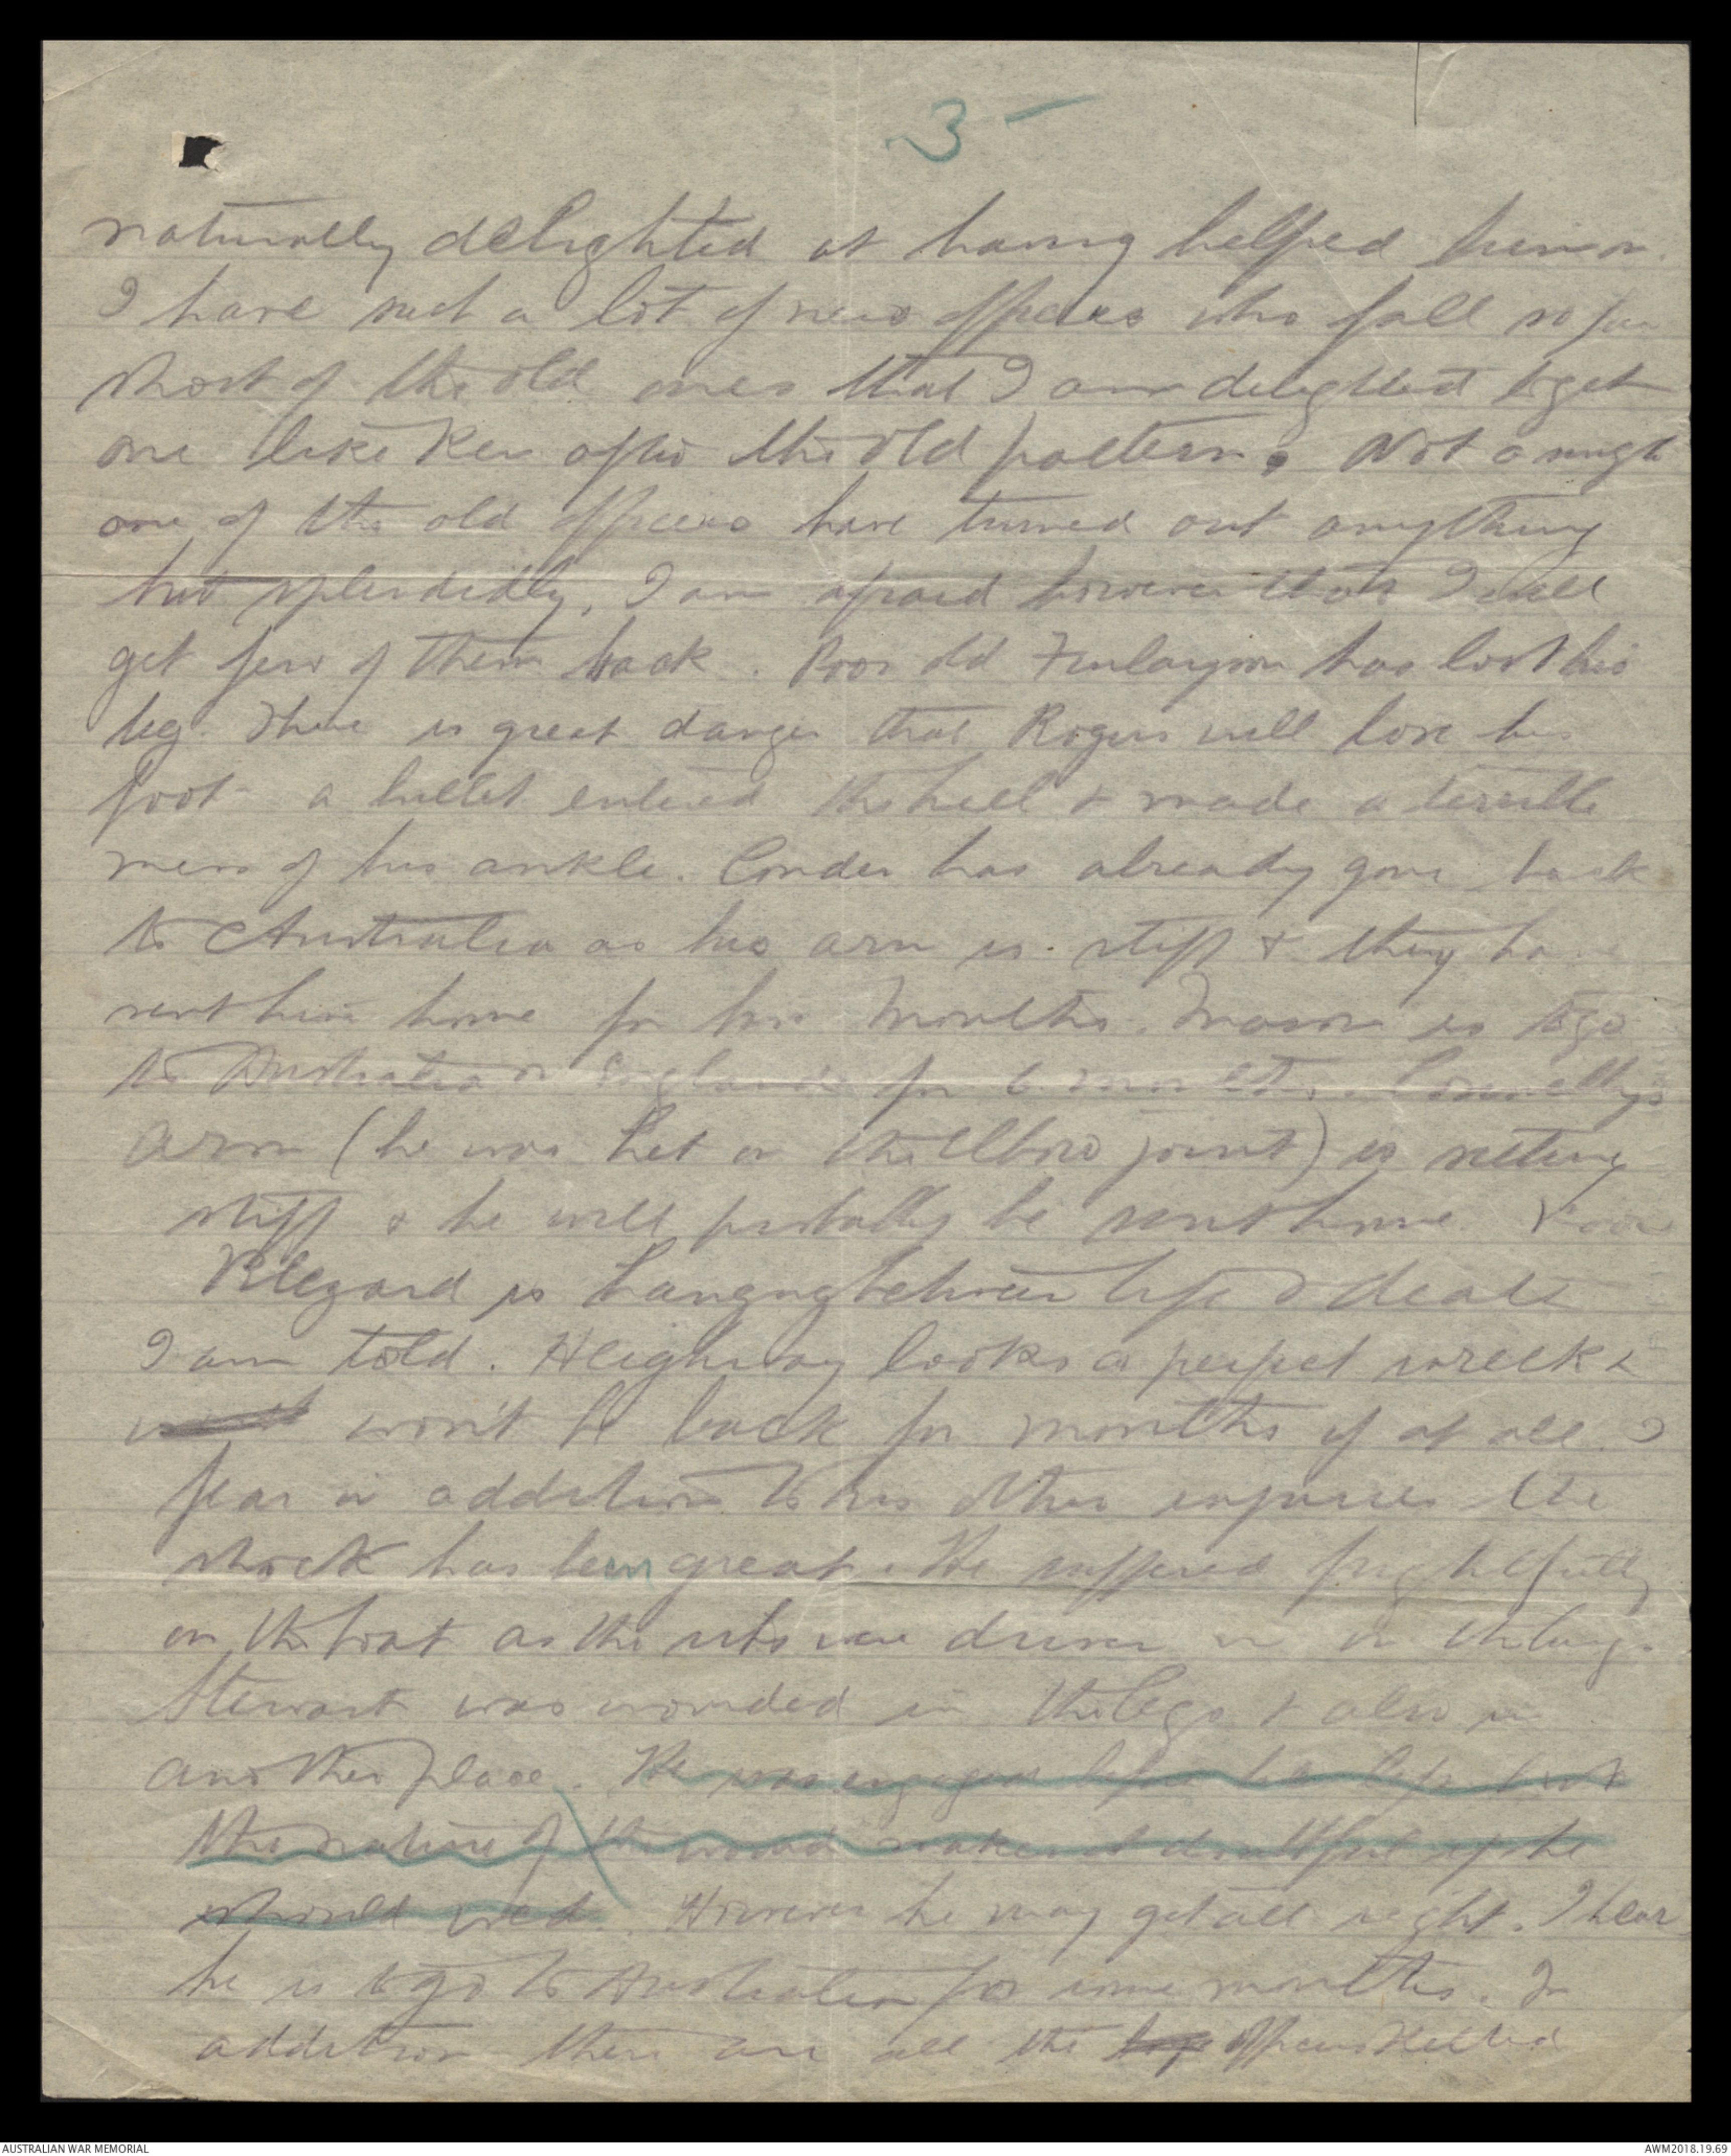 3 -
naturally delighted at having helped him on.
I have such a lot of new officers who fall so far
short of the old ones that I am delighted to get
one like Ken after the old pattern. Not a single
one of the old officers have turned out anything
but splendidly. I am afraid however that I will
get few of them back. Poor old Finlayson has lost his
leg. There is great danger that Rogers will lose his
foot - a bullet entered the heel & made a terrible
mess of his ankle. Conder has already gone back
to Australia as his arm is stiff & they have
sent him home for two months. Mason is to go
to Australia or England for 6 months. Connelly's
arm (he was hit on the elbow joint) is setting
stiff & he will probably be sent home. Poor
Blezard is hanging between life & death
I am told. Heighway looks a perfect wreck &
won't be back for months if at all. I
fear in addition to his other injuries the
shock has been great. He suffered frightfully
on the boat as the ribs were driven in in the lung.
Stewart was wounded in the legs & also in
another place. He was engaged before he left but
the nature of the wound makes it doubtful if he
should wed. However he may get all right. I hear
he is to go to Australia for some months. In
addition there are all the officers killed
AUSTRALIAN WAR MEMORIAL
AWM2018.19.69